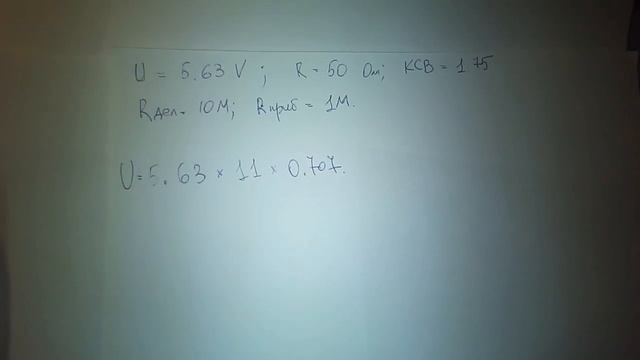 U = 5.63 V ; R = 50 Ом; КСВ = 1.75
Rдел = 10М; Rприб = 1М.
U = 5.63 × 11 × 0.707.